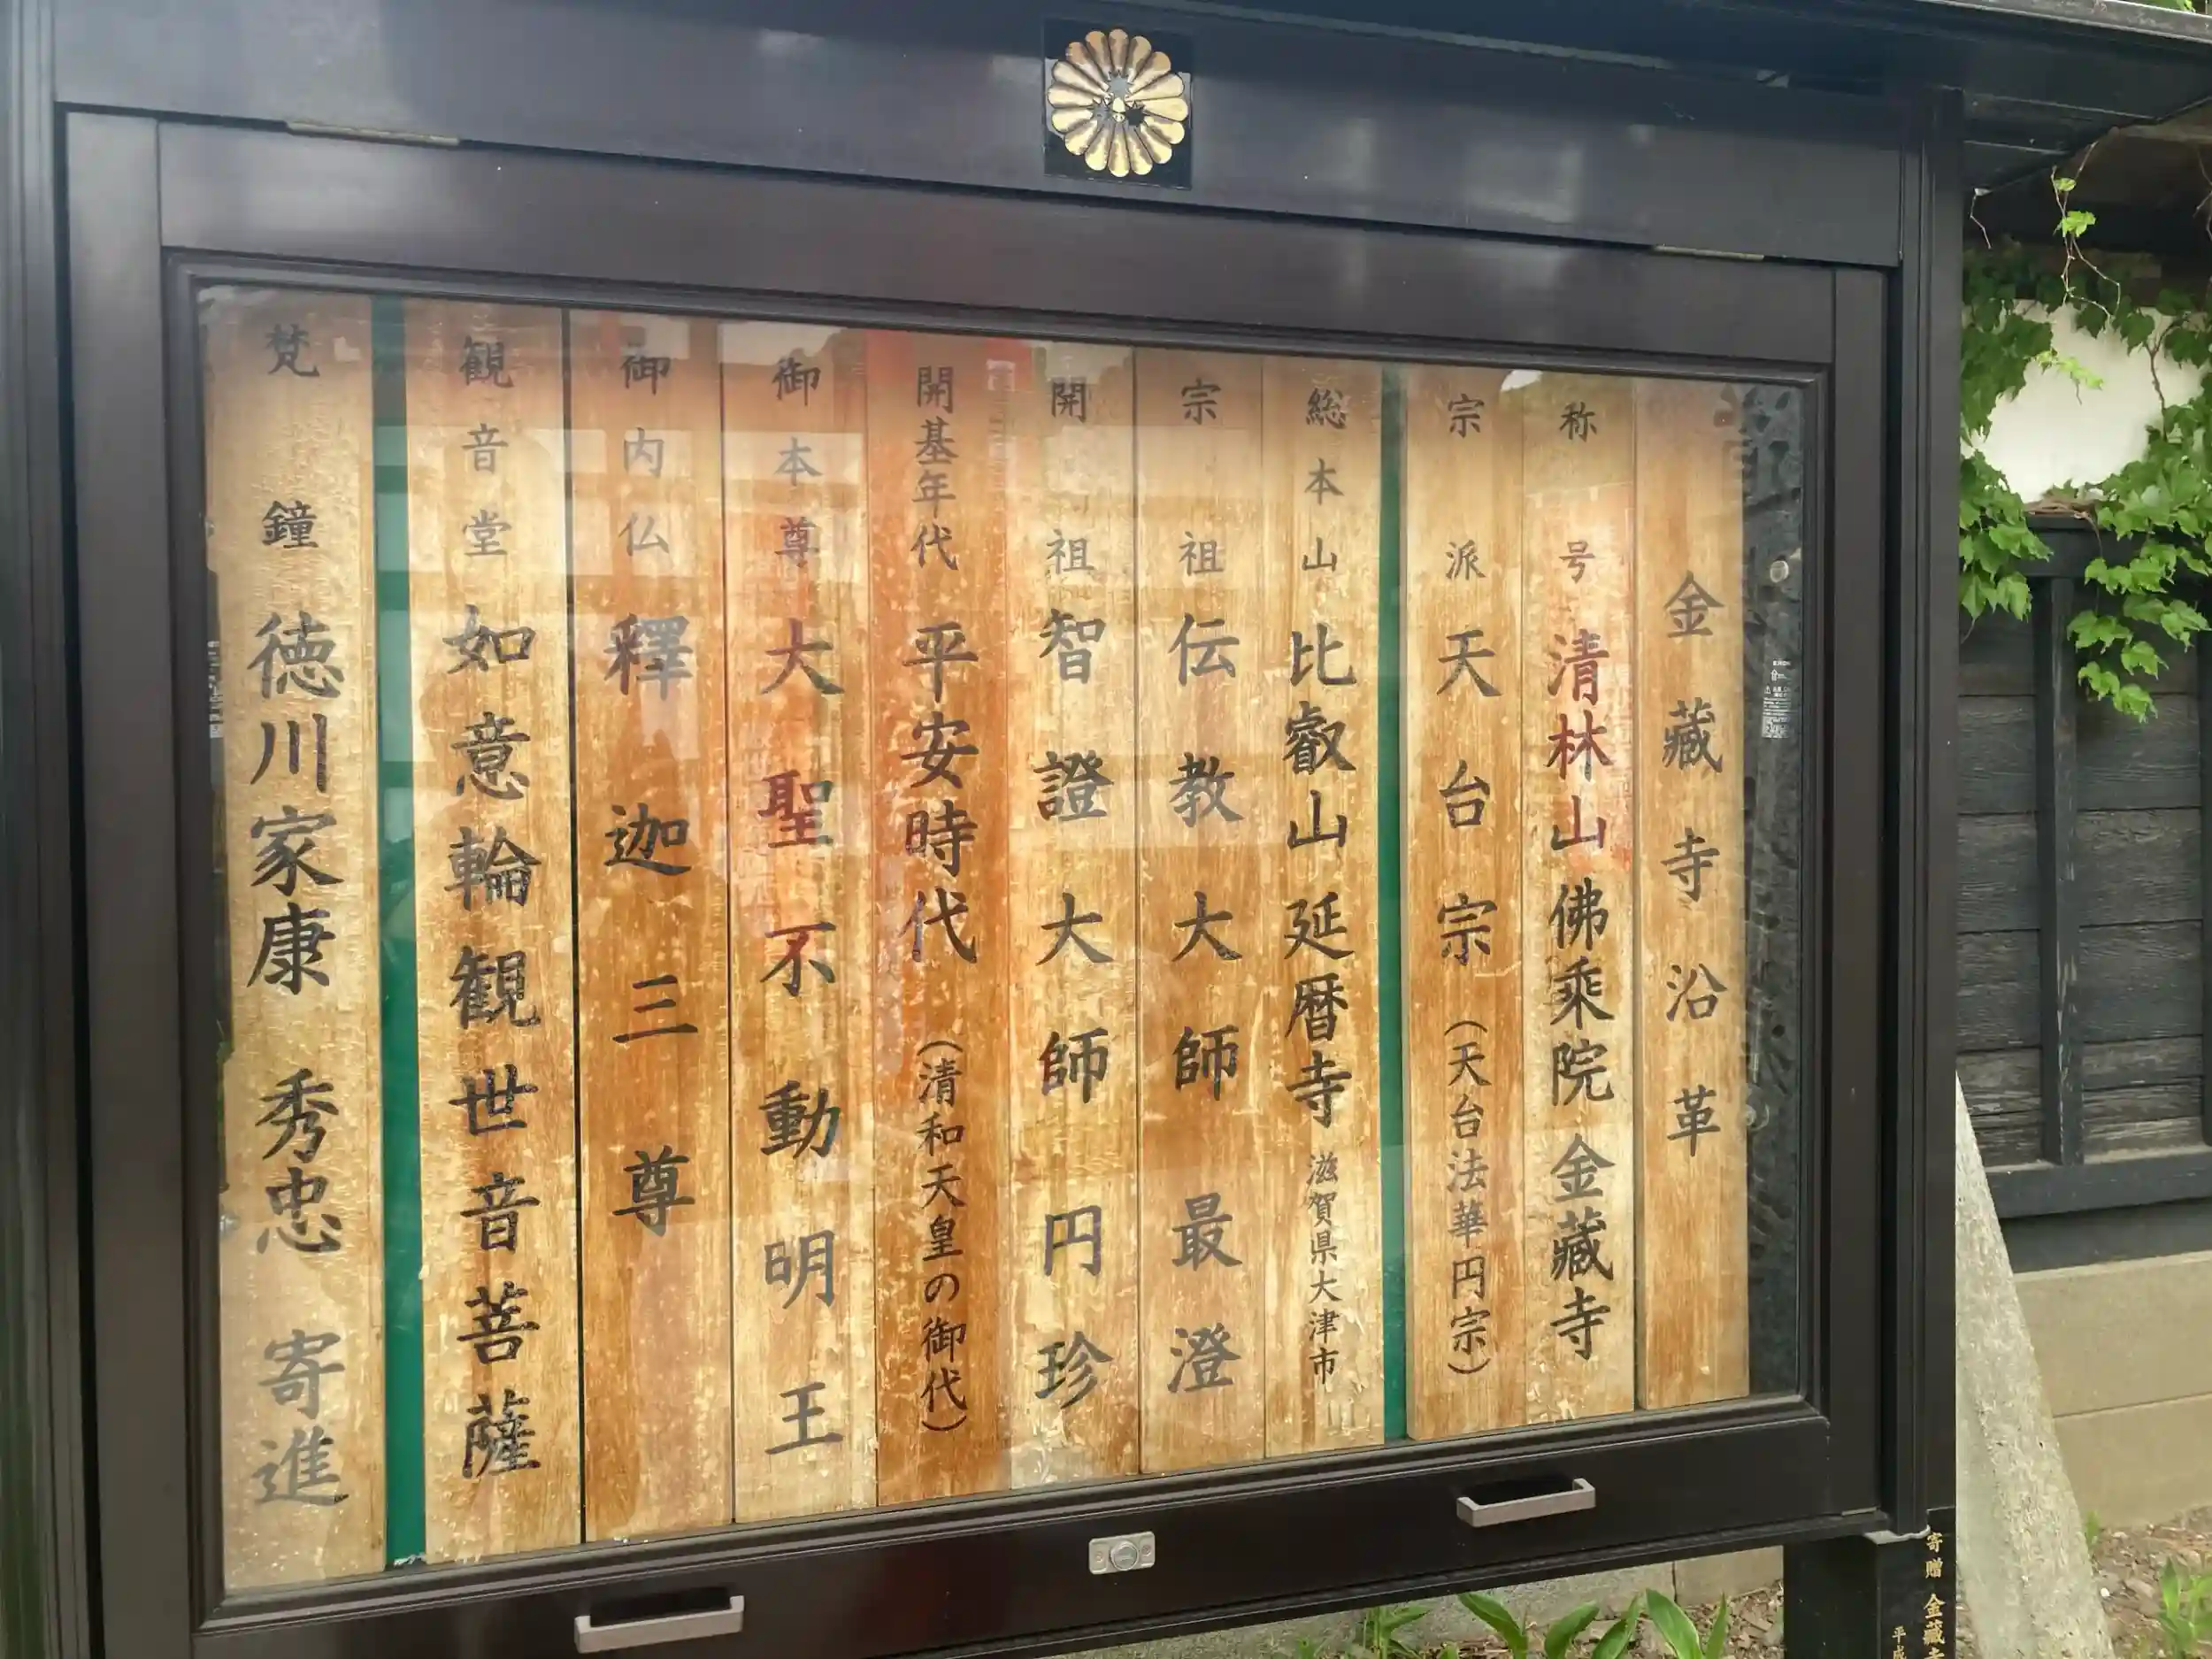 金藏寺沿革
称号 清林山佛乘院金藏寺
宗派 天台宗（天台法華円宗）
総本山 比叡山延暦寺 滋賀県大津市
宗祖 伝教大師最澄
開祖 智證大師円珍
開基年代 平安時代（清和天皇の御代）
御本尊 大聖不動明王
御内仏 釋迦三尊
観音堂 如意輪観世音菩薩
梵鐘 徳川家康 秀忠 寄進
寄贈 金藏
平成